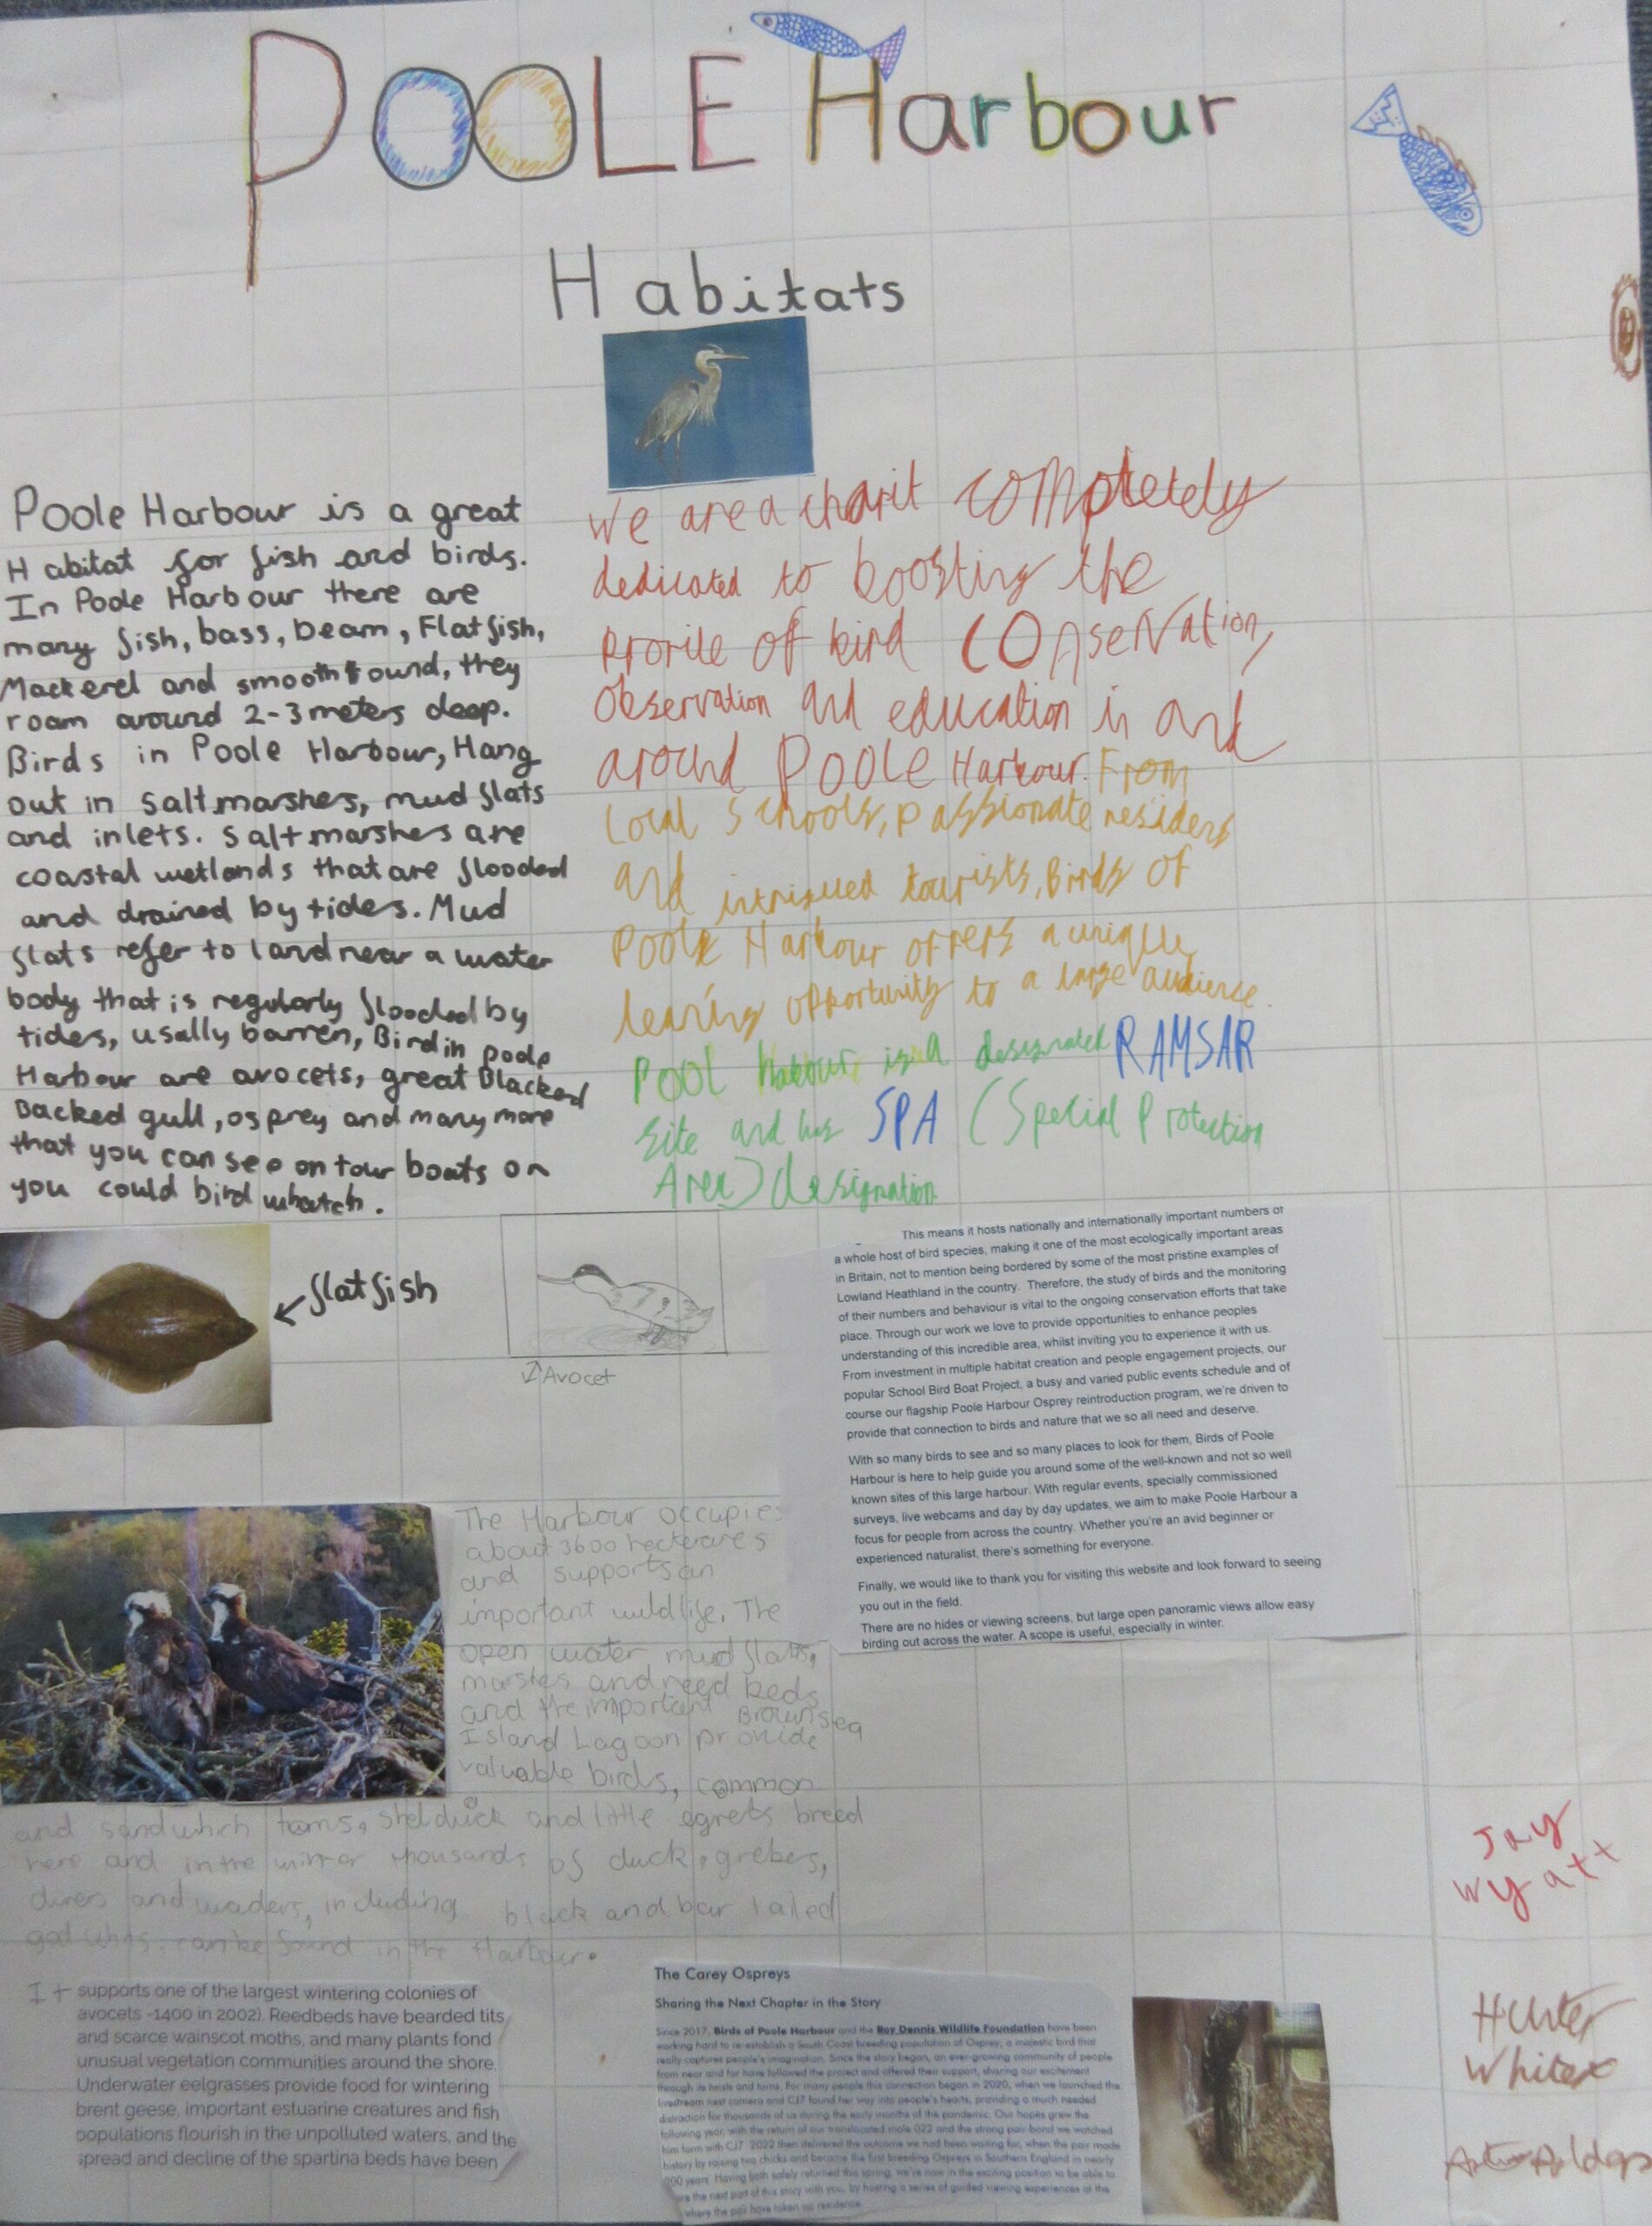 POOLE Harbour
Habitats
Poole Harbour is a great
Habitat for fish and birds.
In Poole Harbour there are
many fish, bass, beam, Flatfish,
Mackerel and smooth ound, they
roam around 2-3 meters deep.
Birds in Poole Harbour, Hang
out in saltmarshes, mud flats
and inlets. Saltmarshes are
coastal wetlands that are flooded
and drained by tides. Mud
flats refer to land near a water
body that is regularly flooded by
tides, usally barren, Bird in poole
Harbour are avocets, great Blacked
Backed gull, osprey and many more
that you can see on tour boats or
you could bird whatch.
We are a charit completely
dedicated to boosting the
profile of bird conservation,
observation and education in and
around Poole Harbour. From
Local schools, passionate residers
and intrigued tourists, Birds of
Poole Harbour offers a unique
learing opportunity to a large audience.
Pool harbour is a designated RAMSAR
site and has SPA (Special Protection
Area) designation
flatfish
Avocet
This means it hosts nationally and internationally important numbers of
a whole host of bird species, making it one of the most ecologically important areas
in Britain, not to mention being bordered by some of the most pristine examples of
Lowland Heathland in the country. Therefore, the study of birds and the monitoring
of their numbers and behaviour is vital to the ongoing conservation efforts that take
place. Through our work we love to provide opportunities to enhance peoples
understanding of this incredible area, whilst inviting you to experience it with us.
From investment in multiple habitat creation and people engagement projects, our
popular School Bird Boat Project, a busy and varied public events schedule and of
course our flagship Poole Harbour Osprey reintroduction program, we're driven to
provide that connection to birds and nature that we so all need and deserve.
With so many birds to see and so many places to look for them, Birds of Poole
Harbour is here to help guide you around some of the well-known and not so well
known sites of this large harbour. With regular events, specially commissioned
surveys, live webcams and day by day updates, we aim to make Poole Harbour a
focus for people from across the country. Whether you're an avid beginner or
experienced naturalist, there's something for everyone.
Finally, we would like to thank you for visiting this website and look forward to seeing
you out in the field.
There are no hides or viewing screens, but large open panoramic views allow easy
birding out across the water. A scope is useful, especially in winter.
The Harbour occupies
about 3600 hecteraes
and supports an
important wildlife. The
open water, mudflats,
marshes and reed beds
and the important Brownsea
Island Lagoon provide
valuable birds, common
and sandwhich terns, shelduck and little egrets breed
here and in the thousands of duck, grebes,
divers and waders, including black and bar tailed
godwits, can be found in the Harbour.
It supports one of the largest wintering colonies of
avocets ~1400 in 2002). Reedbeds have bearded tits
and scarce wainscot moths, and many plants fond
unusual vegetation communities around the shore.
Underwater eelgrasses provide food for wintering
brent geese, important estuarine creatures and fish
populations flourish in the unpolluted waters, and the
spread and decline of the spartina beds have been
The Carey Ospreys
Sharing the Next Chapter in the Story
Since 2017, Birds of Poole Harbour and the Roy Dennis Wildlife Foundation have been
working hard to re-establish a South Coast breeding population of Osprey, a majestic bird that
really captures people's imagination. Since the story began, an ever-growing community of people
from near and far have followed the project and offered their support, sharing our excitement
through its twists and turns. For many people this connection began in 2020, when we launched the
livestream nest camera and CJ7 found her way into people's hearts, providing a much needed
distraction for thousands of us during the early months of the pandemic. Our hopes grew the
following year, with the return of our translocated male 022 and the strong pair-bond we watched
him form with CJ7. 2022 then delivered the outcome we had been waiting for, when the pair made
history by raising two chicks and became the first breeding Ospreys in Southern England in nearly
200 years. Having both safely returned this spring, we're now in the exciting position to be able to
the next part of this story with you, by hosting a series of guided viewing experiences at the
where the pair have taken up residence.
Jay
Wyatt
Hunter
White